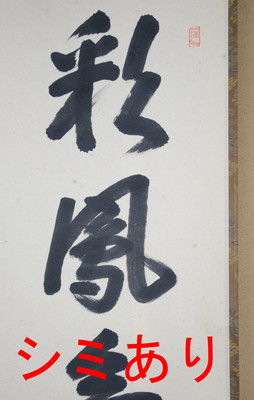 彩
鳳
シミあり